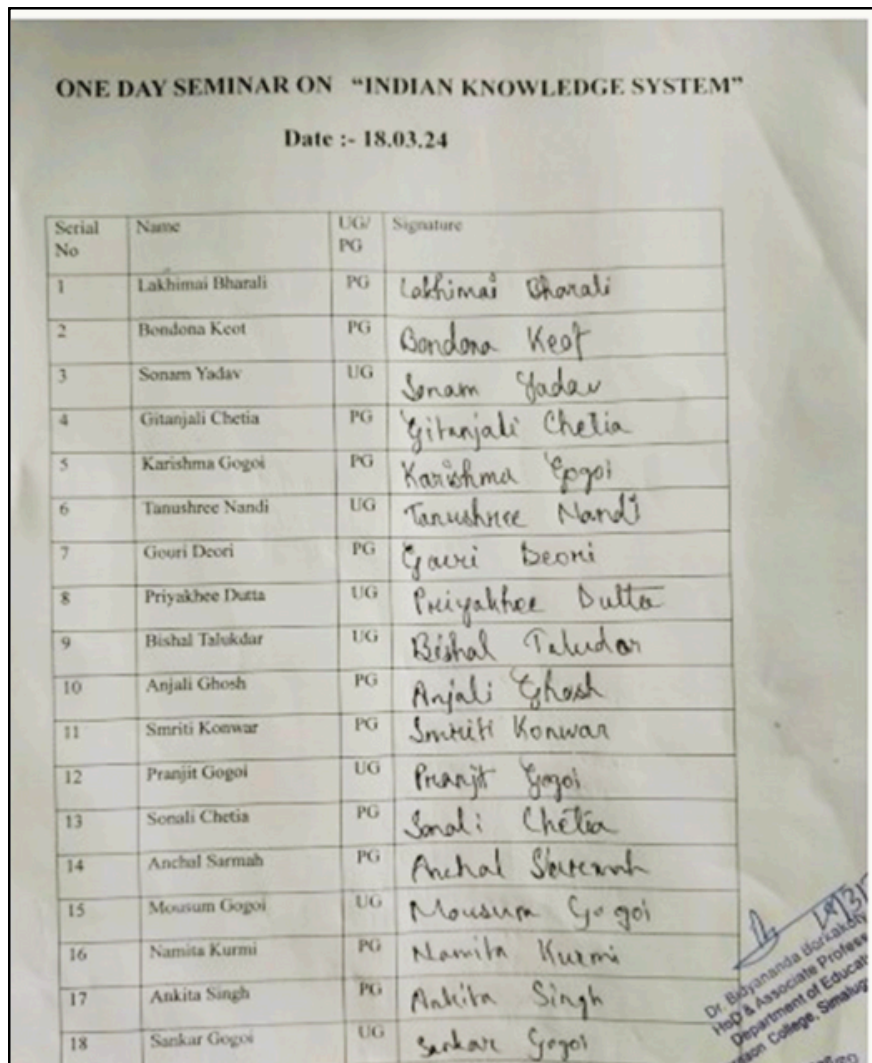 ONE DAY SEMINAR ON “INDIAN KNOWLEDGE SYSTEM”
Date :- 18.03.24
Serial No Name UG/ PG Signature
1 Lakhimai Bharali PG Lakhimai Bharali
2 Bondona Keot PG Bondona Keot
3 Sonam Yadav UG Sonam Yadav
4 Gitanjali Chetia PG Gitanjali Chetia
5 Karishma Gogoi PG Karishma Gogoi
6 Tanushree Nandi UG Tanushree Nandi
7 Gouri Deori PG Gouri Deori
8 Priyakhee Dutta UG Priyakhee Dutta
9 Bishal Talukdar UG Bishal Taludar
10 Anjali Ghosh PG Anjali Ghosh
11 Smriti Konwar PG Smriti Konwar
12 Pranjit Gogoi UG Pranjit Gogoi
13 Sonali Chetia PG Sonali Chetia
14 Anchal Sarmah PG Anchal
15 Mousum Gogoi UG Mousum Gogoi
16 Namita Kurmi PG Namita Kurmi
17 Ankita Singh PG Ankita Singh
18 Sankar Gogoi UG Sankar Gogoi
Dr. Bidyananda Borkakoty
HoD & Associate Profess
Department of Educat
College, Simalug